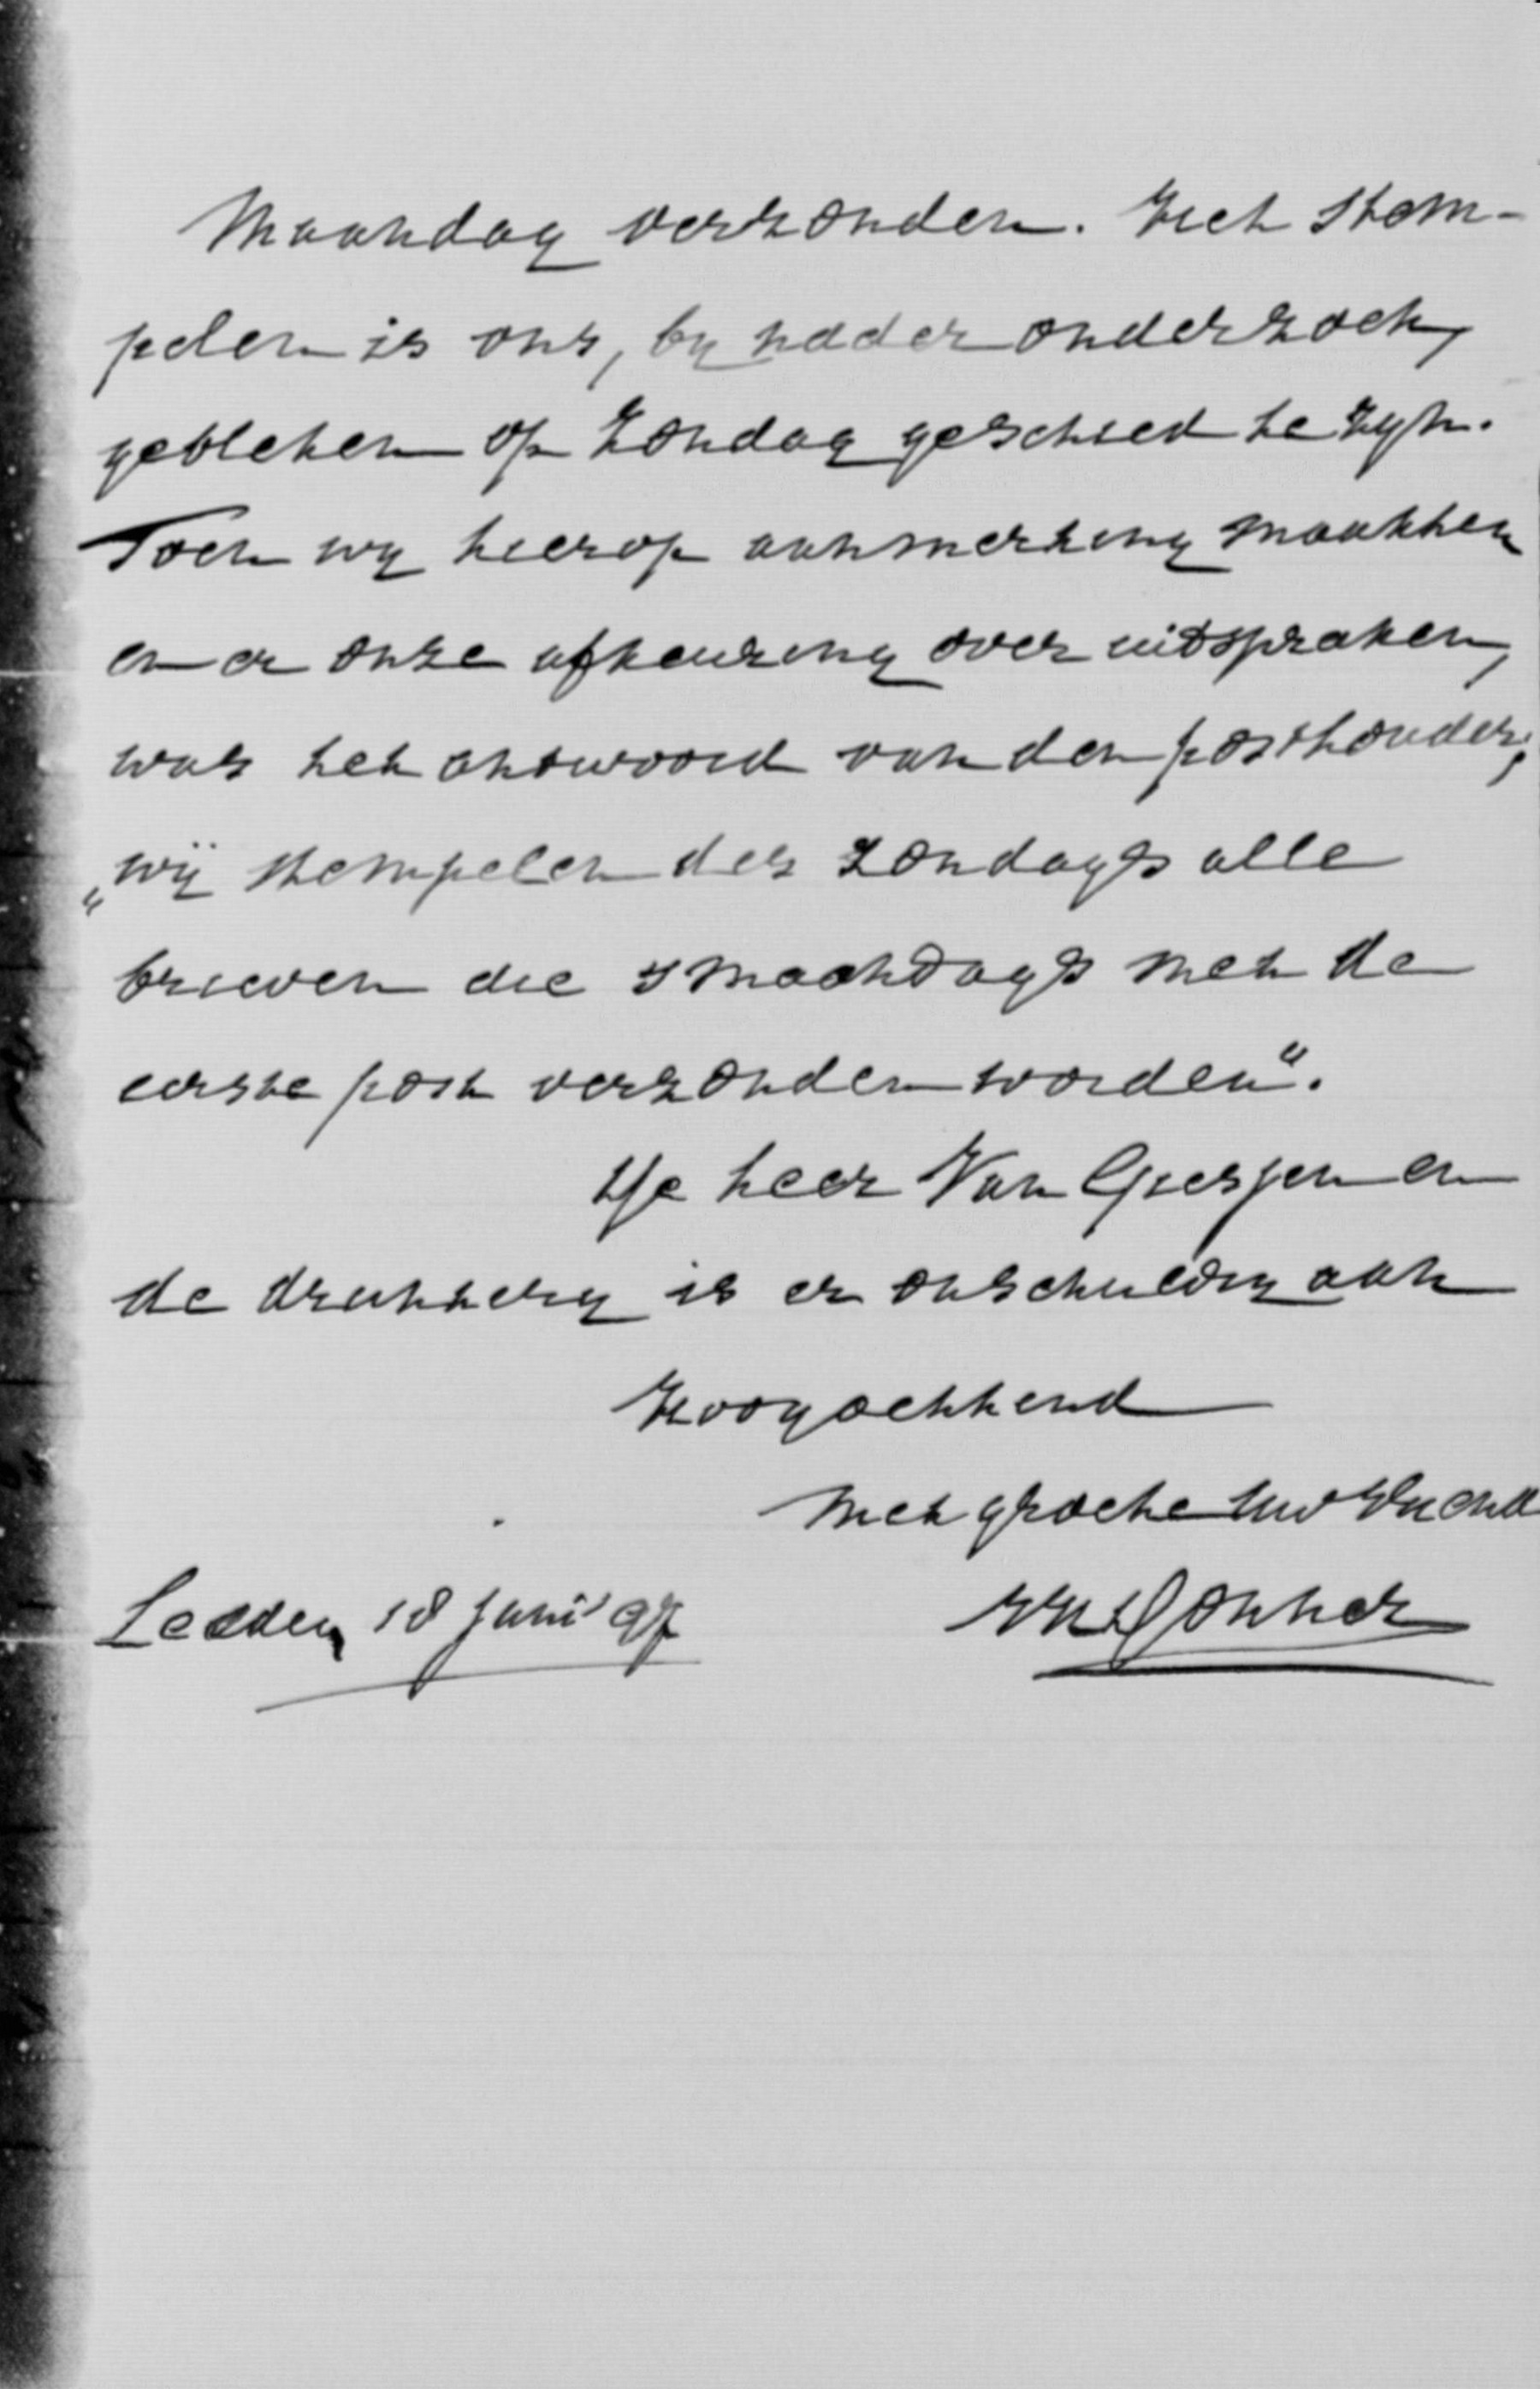 Maandag verzonden. Het stem-
pelen is ons, by nader onderzoek,
gebleken op Zondag geschied te zyn.
Toen wy hierop aanmerking maakten
en er onze afkeuring over uitspraken,
was het antwoord van den posthouder,
„wij stempelen des zondags alle
brieven die smaandags met de
eerste post verzonden worden“.
De heer Van Giesjen en
de drukkery is er onschuldig aan
Hoogachtend
Met groete Uw Vriend
Leiden, 18 Juni 97 Donner